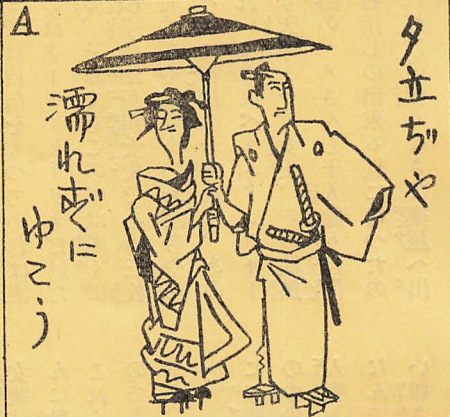 A
夕立ぢや
濡れずに
ゆこう